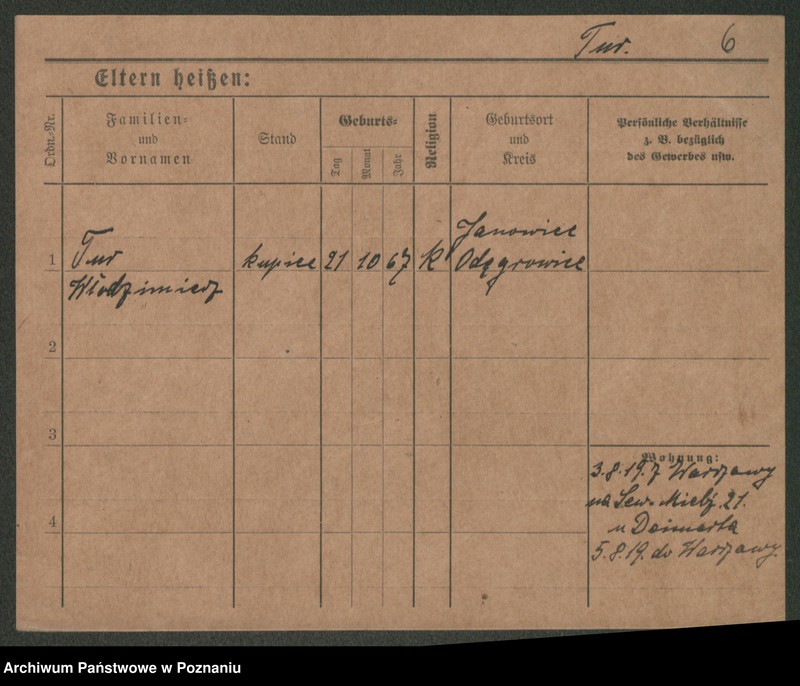 Tur. 6
Eltern heißen:
Ordn.-Nr.
Familien-
und
Vornamen
Stand
Geburts-
Tag
Monat
Jahr
Religion
Geburtsort
und
Kreis
Persönliche Verhältnisse
z. B. bezüglich
des Gewerbes usw.
1
Tur
Włodzimierz
kupiec 21 10 67 K
Janowiec
2
3
4
Wohnung:
3.8.19. z Warszawy
na Sew. Mielż. 21.
u
5.8.19. do Warszawy.
Archiwum Państwowe w Poznaniu